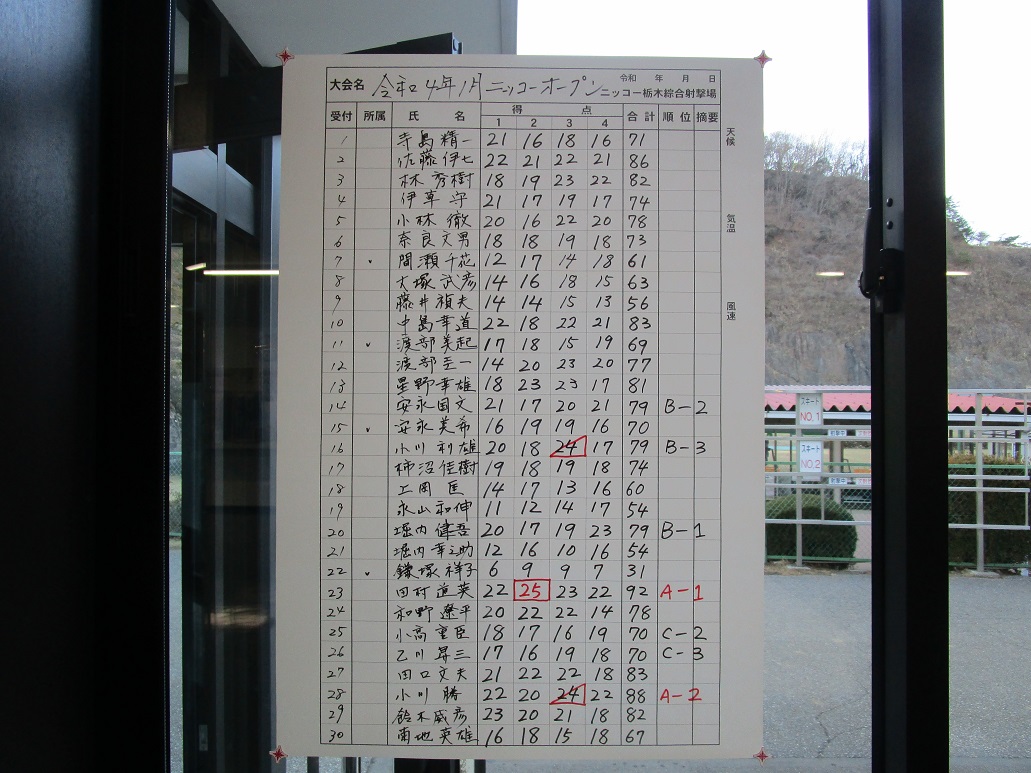 大会名 令和4年1月ニッコーオープン 令和 年 月 日
ニッコー栃木綜合射撃場
受付 所属 氏 名 得 点 合計 順位 摘要
1 2 3 4
1 寺島精一 21 16 18 16 71
2 佐藤伊七 22 21 22 21 86
3 林秀樹 18 19 23 22 82
4 伊草守 21 17 19 17 74
5 小林徹 20 16 22 20 78
6 奈良文男 18 18 19 18 73
7 ✓ 間瀬千花 12 17 14 18 61
8 大塚武彦 14 16 18 15 63
9 藤井禎夫 14 14 15 13 56
10 中島幸道 22 18 22 21 83
11 ✓ 渡部美起 17 18 15 19 69
12 渡部至一 14 20 23 20 77
13 星野幸雄 18 23 23 17 81
14 安永国文 21 17 20 21 79 B-2
15 ✓ 安永美希 16 19 19 16 70
16 小川利雄 20 18 24 17 79 B-3
17 柿沼佳樹 19 18 19 18 74
18 上岡匡 14 17 13 16 60
19 永山和伸 11 12 14 17 54
20 堀内健吾 20 17 19 23 79 B-1
21 堀内幸之助 12 16 10 16 54
22 ✓ 鎌塚祥子 6 9 9 7 31
23 田村直英 22 25 23 22 92 A-1
24 和野遼平 20 22 22 14 78
25 小高重臣 18 17 16 19 70 C-2
26 乙川昇三 17 16 19 18 70 C-3
27 田口文夫 21 22 22 18 83
28 小川勝 22 20 24 22 88 A-2
29 鈴木威彦 23 20 21 18 82
30 菊地英雄 16 18 15 18 67
天候
気温
風速
スキート
NO.1
スキート
NO.2